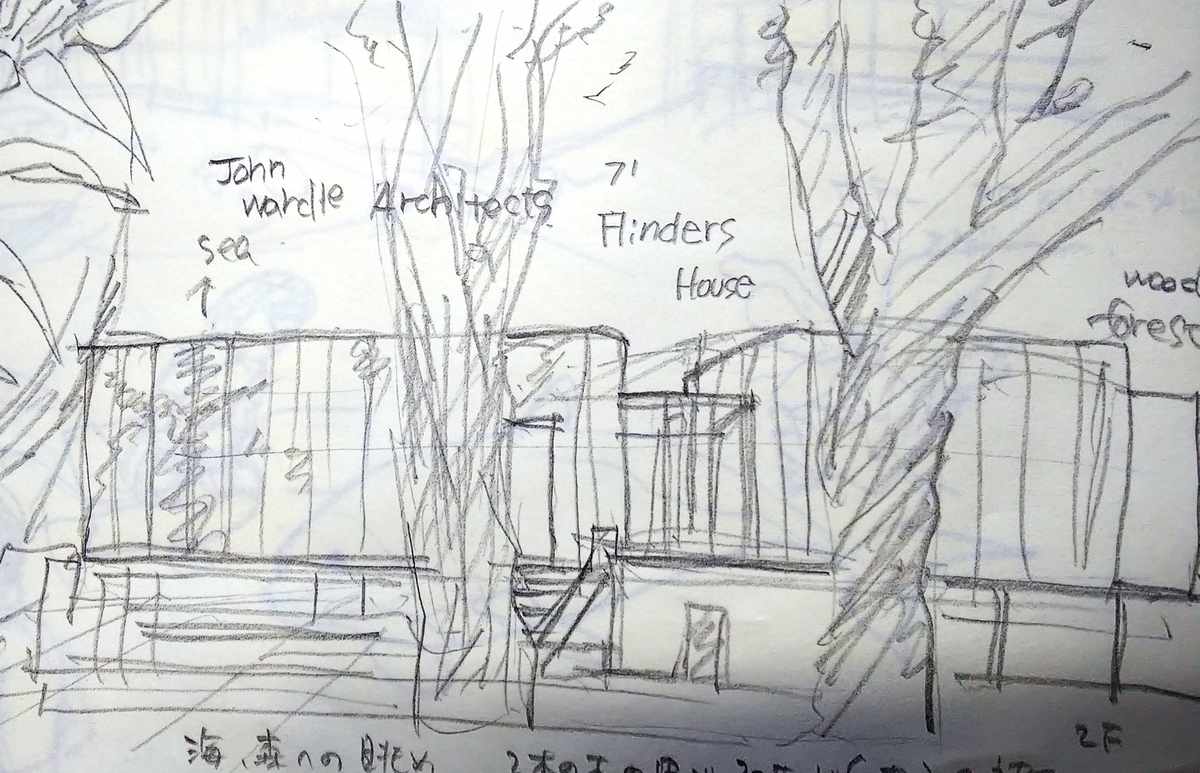 John
wardle Architects
71
Flinders
House
sea
wood
forest
海、森への眺め
2本の木の
2F